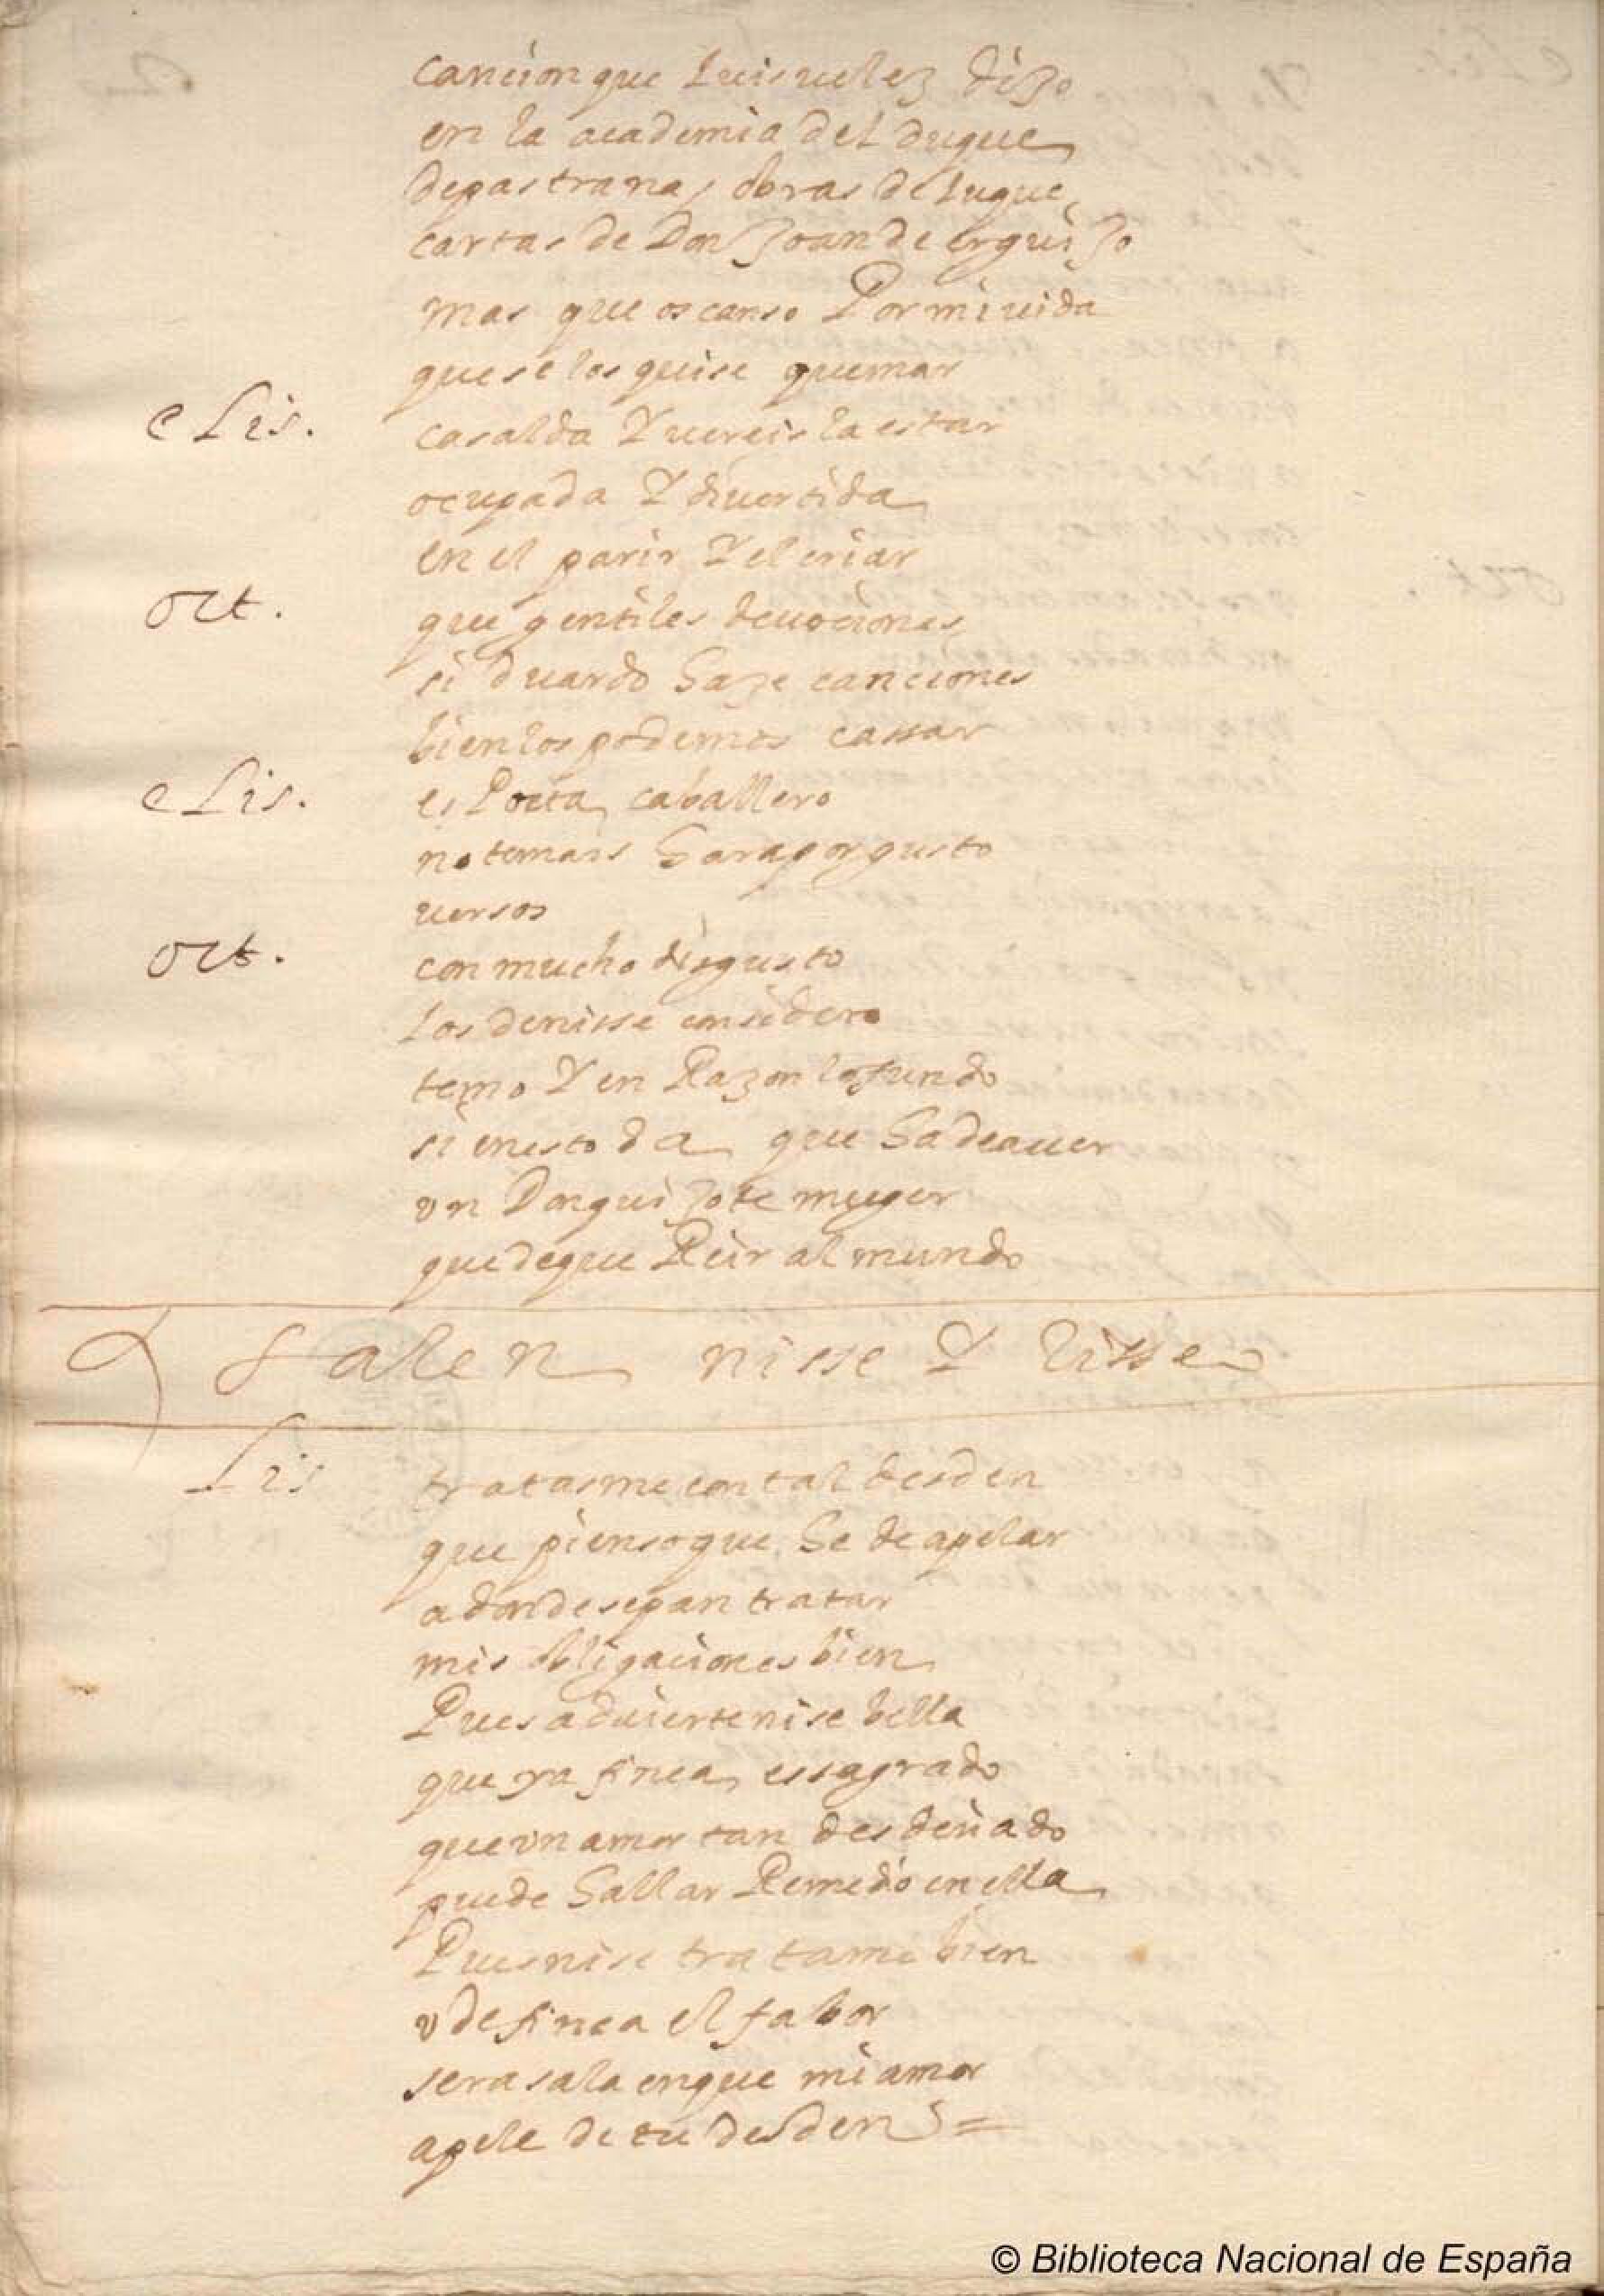 cancion que Luis uelez dijo
en la academia del duque
de pastrana, obras de Luque
cartas de Don Joan de arguijo
mas que os canso Por mi uida
que se los quise quemar
eLis. casalda Y uereis la estar
ocupada Y diuertida
en el parir Y el criar
Oct. que gentiles deuociones
si duardo haze canciones
bien los podemos cassar
eLis. es Poeta caballero
no temais hara por gusto
uersos
Oct. con mucho disgusto
los de nisse considero
temo Y en Razon lo fundo
si en esto da que ha de auer
vn Don quijote muger
que de que Reir al mundo
Salen nisse Y lisseo
Lis tratasme con tal desden
que pienso que he de apelar
adonde sepan tratar
mis obligaciones bien
Pues aduierte nise bella
que ya finea es sagrado
que vn amor tan desdeñado
puede hallar Remedio en ella
Pues nise tratame bien
v de finea el fabor
sera sala en que mi amor
apele de tu desden
© Biblioteca Nacional de España